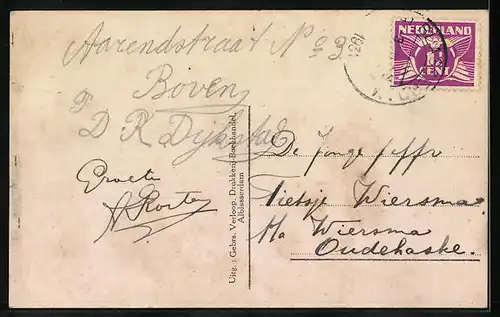 Aarendstraat No 23
Boven
D R Dijkstal
Groete
A Korte
Uitg.: Gebrs. Verloop, Drukkerij-Boekhandel,
Alblasserdam
NEDERLAND
1½
CENT
1931
De Jonge juffr
Tietsje Wiersma
Ha Wiersma
Oudehaske.